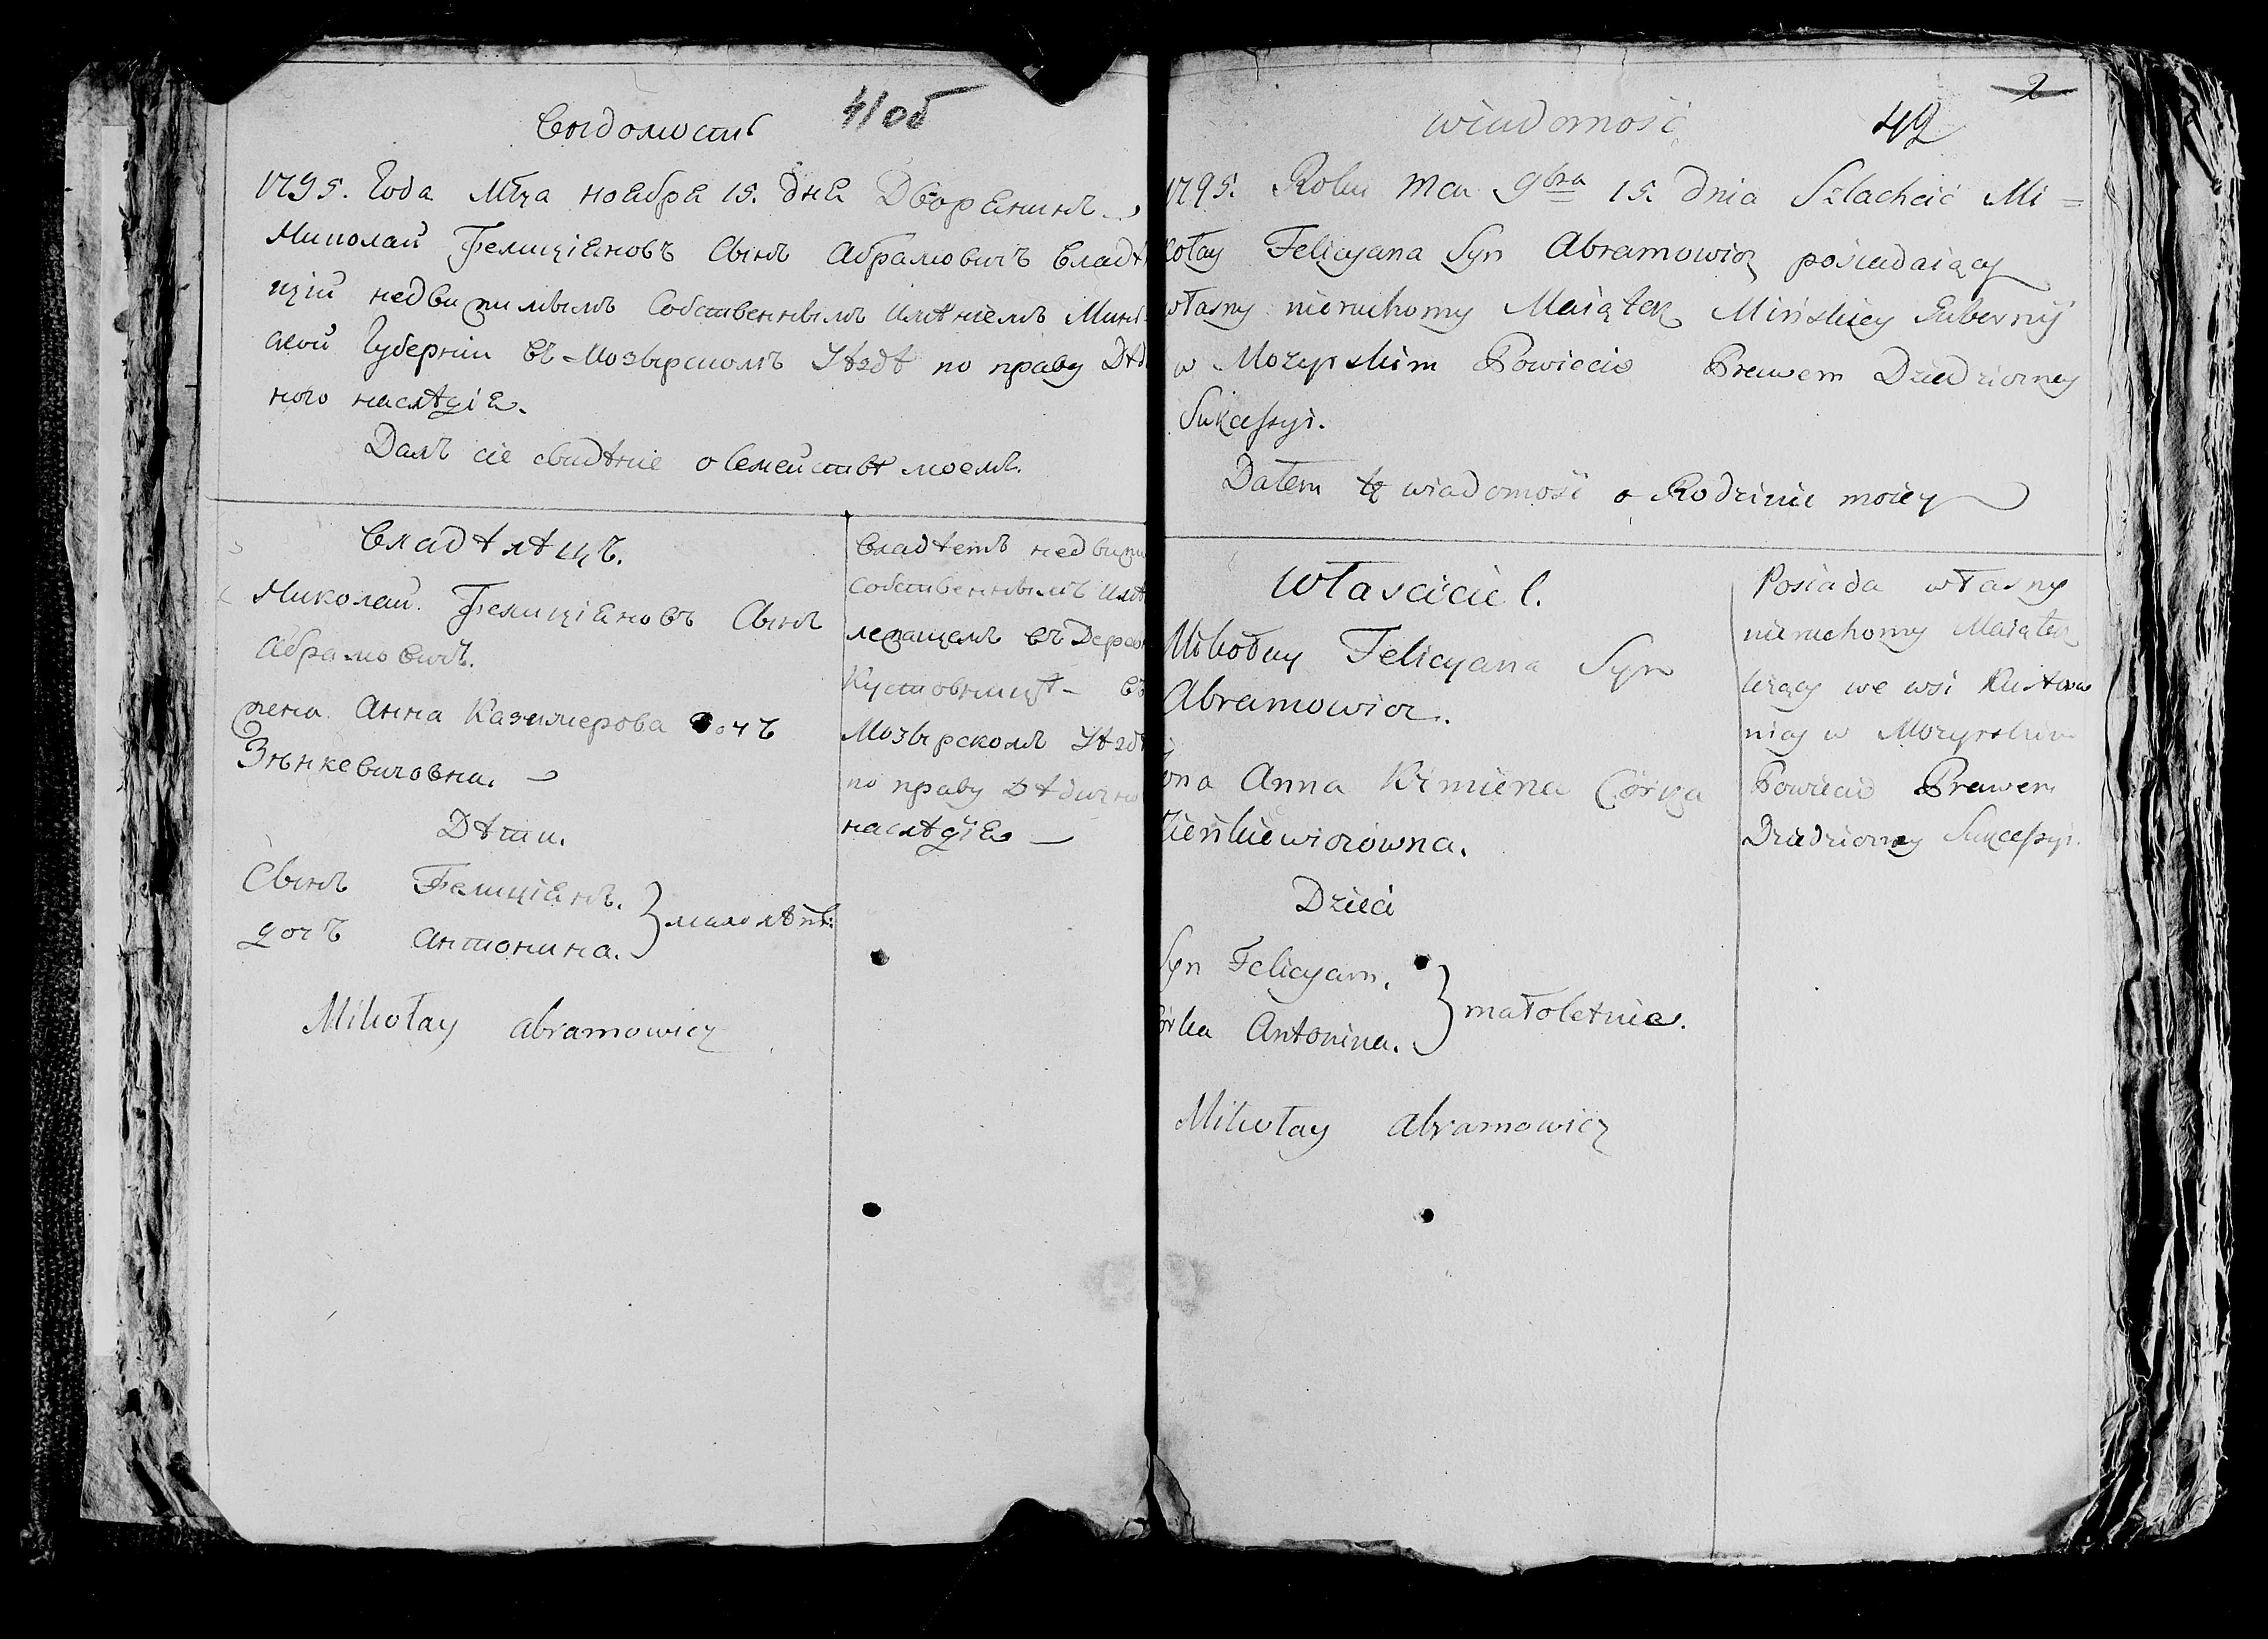 41об
Выдомость
1795. Года Мца ноабра 15. дня Дворянинъ
Николай Фелиціяновъ Сынъ Абрамовичъ владѣ
щій недвижимымъ Собственнымъ имѣніемъ Минс
кой Губерніи въ Мозырскомъ Уѣздѣ по праву Дѣд
ного наслѣдія.
Далъ сіе свидѣніе о Семействѣ моемъ.
Владѣлѣцъ.
Николай Фелиціяновъ Сынъ
Абрамовичъ.
жена Анна Казимерова дочъ
Зѣнкевичовна.
Дѣти.
Сынъ Фелиціянъ.
дочъ Антонина.
малолѣтн:
Mikołay Abramowicz
Владѣетъ недвижи
Собственнымъ имѣ
лежащемъ въ Дерев
Кустовницѣ въ
Мозырскомъ Уѣздѣ
по праву Дѣдично
наслѣдія
2
42
wiadomość
1795. Roku Mca 9bra 15. dnia Szlachcic Mi=
kołay Felicyana Syn Abramowicz posiadaiący
własny nieruchomy Maiątek Mińskiey Gubernij
w Mozyrskim Powiecie Prawem Dziedziczney
Sukcessyi.
Dałem tę wiadomość o Rodzinie moiey
Właściciel.
Mikołay Felicyana Syn
Abramowicz.
żona Anna Córka
Zieńkiewiczówna.
Dzieci
Syn Felicyan.
córka Antonina.
małoletnie.
Mikołay Abramowicz
Posiada własny
nieruchomy Maiątek
leżący we wsi Kustow
nicy w Mozyrskim
Powiecie Prawem
Dziedziczney Sukcessyi.